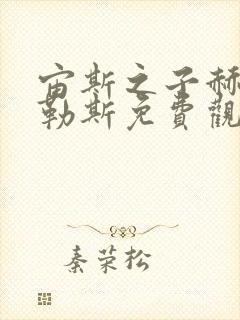 宙斯之子赫
勒斯免費觀
秦荣松